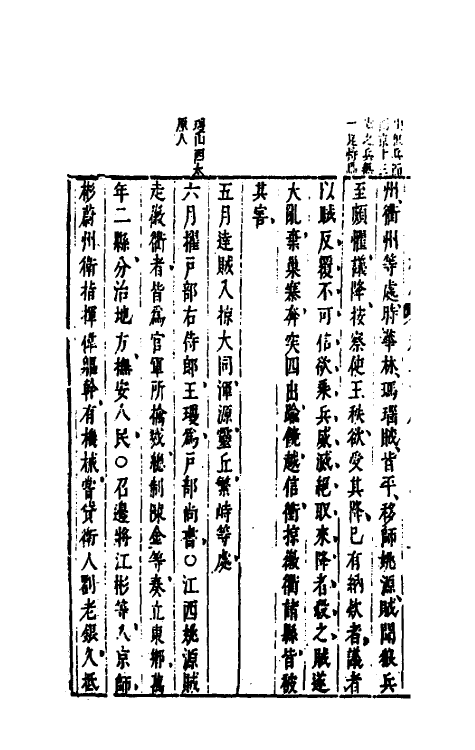 州衢州等處時華林瑪瑙賊皆平移師姚源賊聞狼兵
至頗懼議降按察使王秩欲受其降已有納欵者議者
以賊反覆不可信欲乘兵威滅絕取來降者殺之賊遂
大亂棄巢寨奔突四出踰饒越信衝掠徽衢諸縣皆被
其害
五月達賊入掠大同渾源靈丘繁峙等處
六月擢戶部右侍郎王瓊爲戶部尚書○江西姚源賊
走徽衢者皆爲官軍所擒殘總制陳金等奏立東鄉萬
年二縣分治地方撫安人民○召邊將江彬等入京師
彬蔚州衛指揮偉軀幹有機械嘗貸衛人劉老銀久抵
瓊山西太
原人